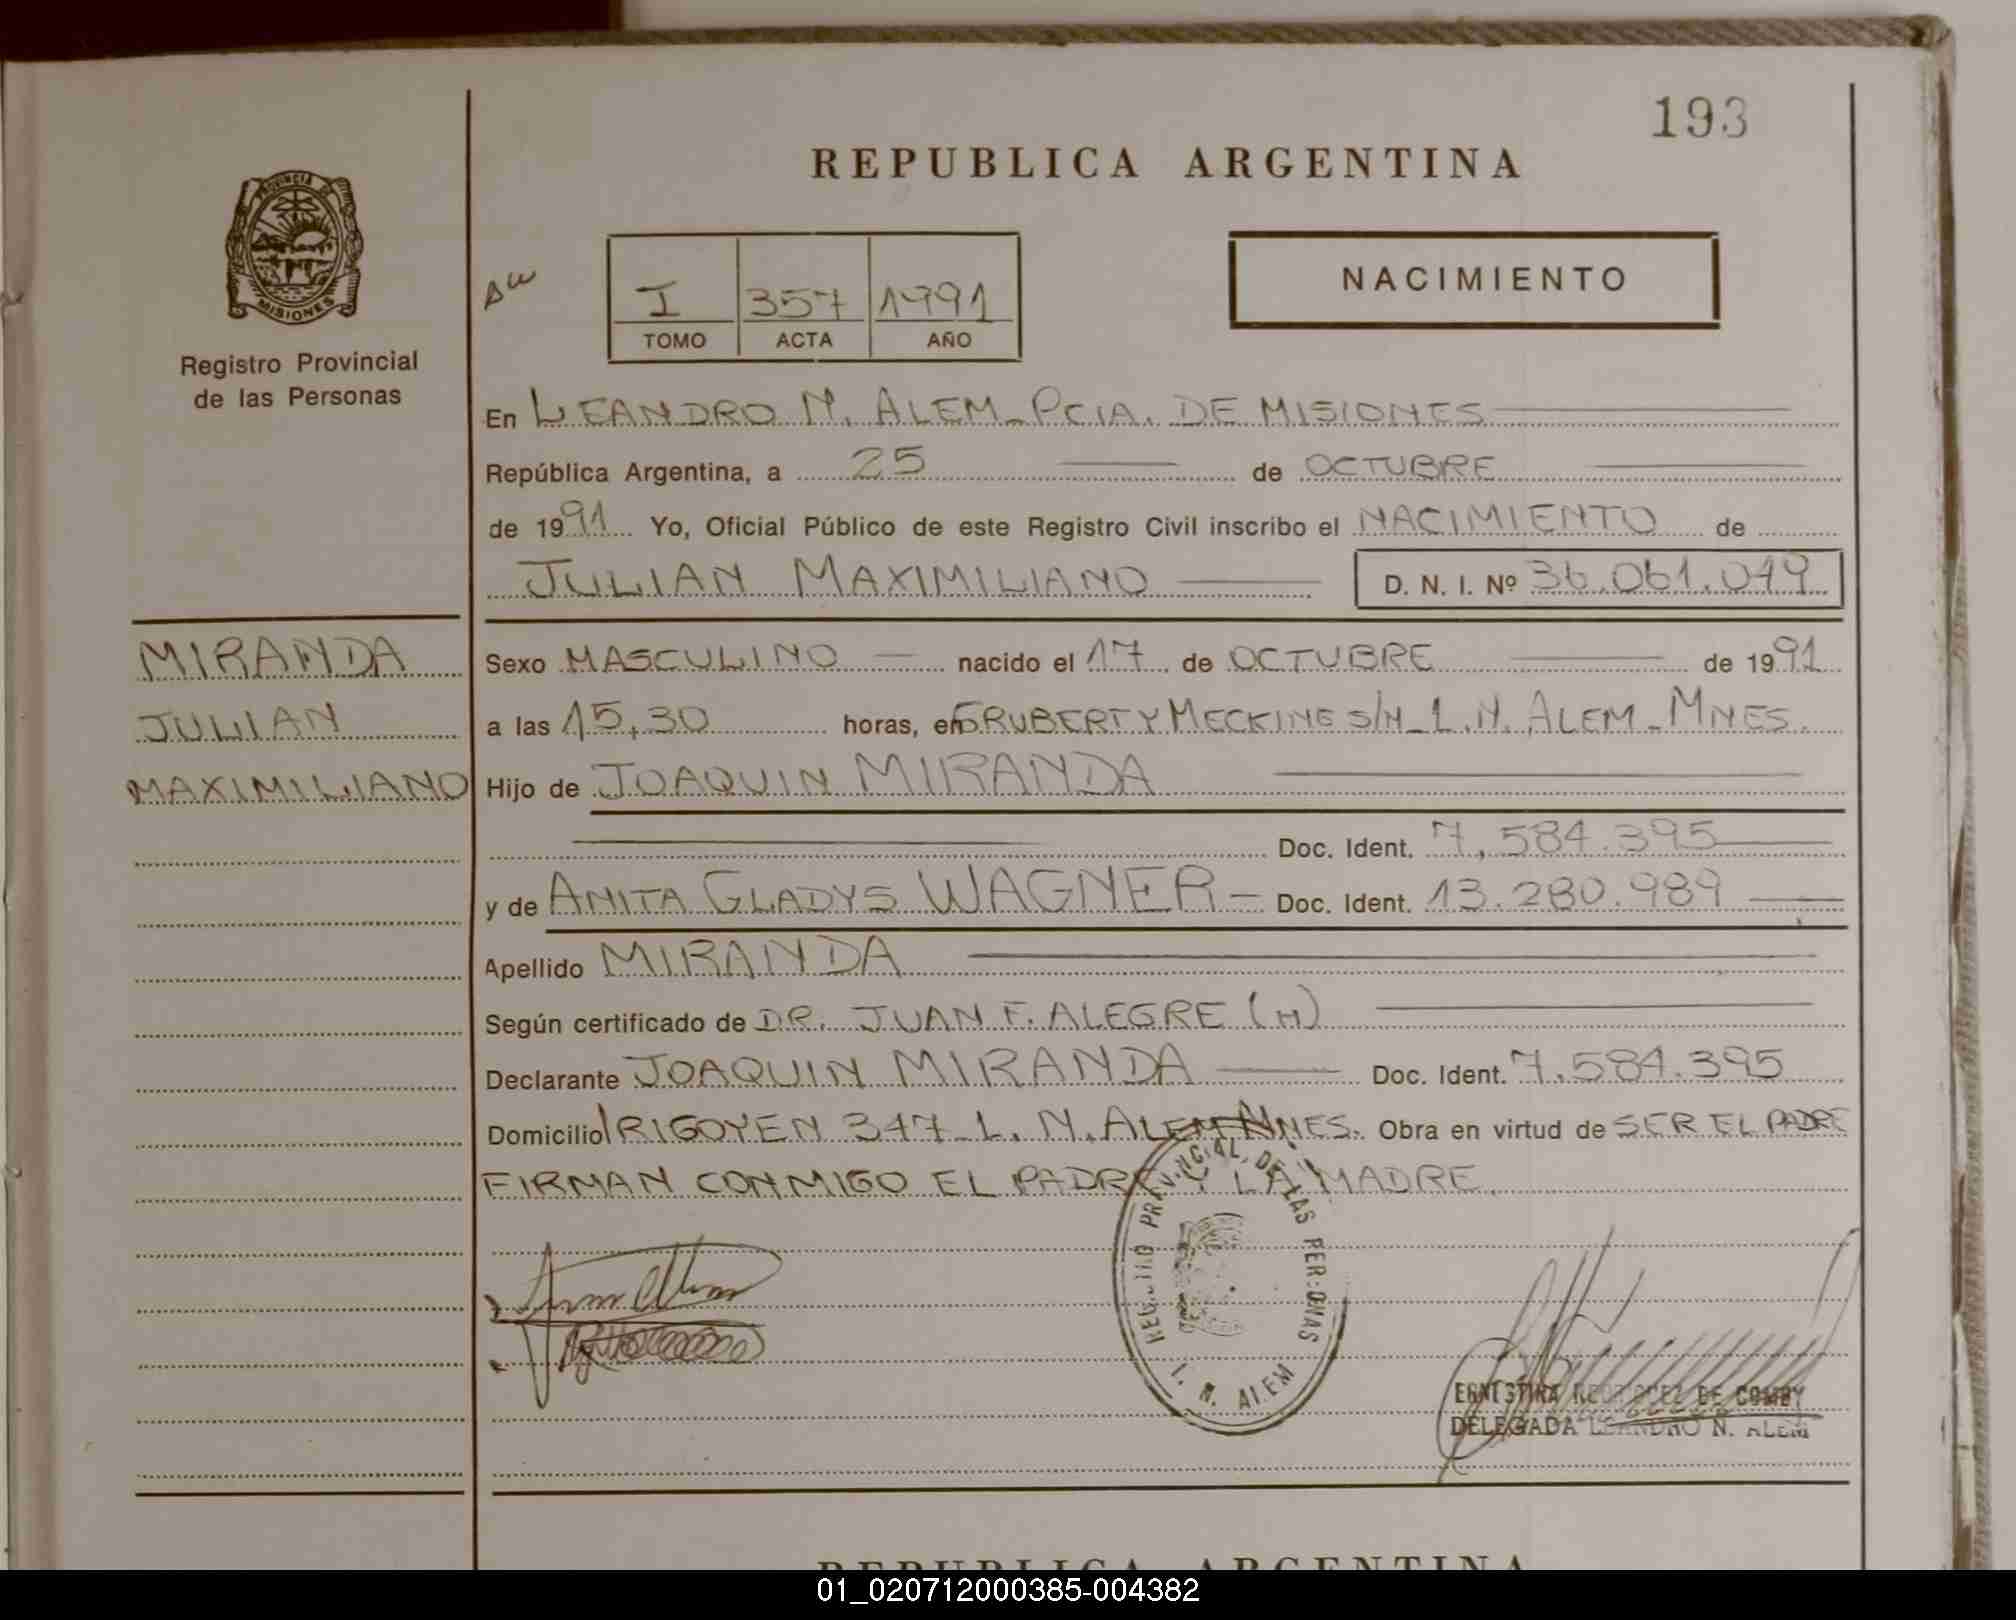 193
REPUBLICA ARGENTINA
PROVINCIA DE
MISIONES
Registro Provincial
de las Personas
I 357 1991
TOMO ACTA AÑO
NACIMIENTO
En LEANDRO N. ALEM - PCIA. DE MISIONES
República Argentina, a 25 de OCTUBRE
de 1991 Yo, Oficial Público de este Registro Civil inscribo el NACIMIENTO de
JULIAN MAXIMILIANO D. N. I. Nº 36.061.049
MIRANDA
JULIAN
MAXIMILIANO
Sexo MASCULINO - nacido el 17 de OCTUBRE de 1991
a las 15,30 horas, en GRUBERT Y MECKING S/N - L.N. ALEM - MNES.
Hijo de JOAQUIN MIRANDA
Doc. Ident. 7.584.395
y de ANITA GLADYS WAGNER - Doc. Ident. 13.280.989
Apellido MIRANDA
Según certificado de DR. JUAN F. ALEGRE (H)
Declarante JOAQUIN MIRANDA Doc. Ident. 7.584.395
Domicilio IRIGOYEN 347 - L. N. ALEM MNES. Obra en virtud de SER EL PADRE
FIRMAN CONMIGO EL PADRE Y LA MADRE.
REGISTRO PROVINCIAL DE LAS PERSONAS
L. N. ALEM
DE COMBY
DELEGADA LEANDRO N. ALEM
REPUBLICA ARGENTINA
01_020712000385-004382